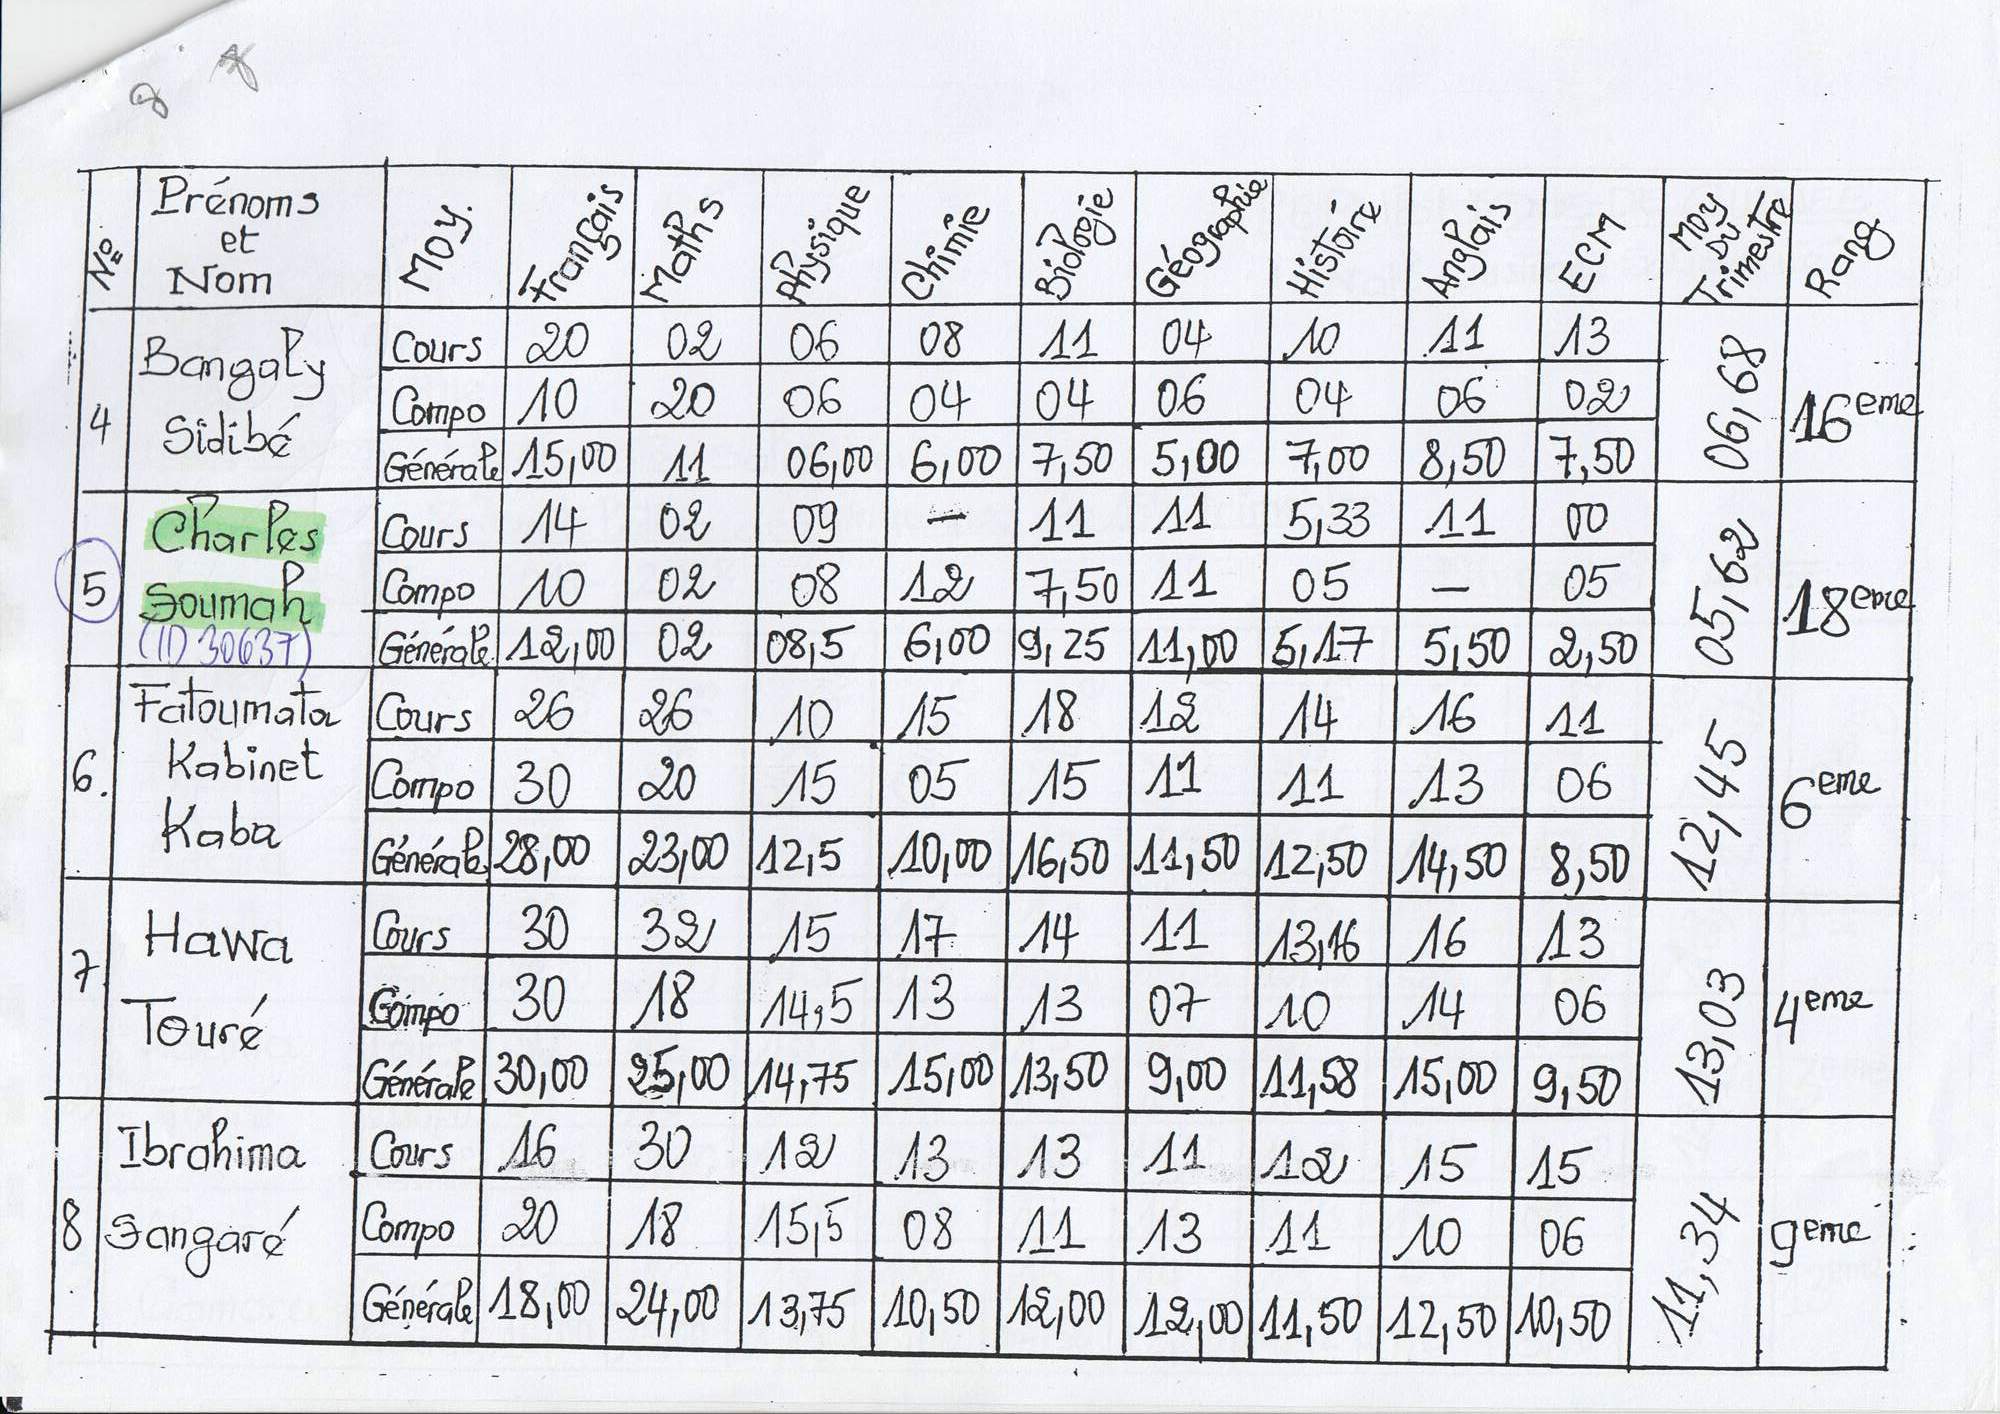 N° Prénoms et Nom Moy. Français Maths Physique Chimie Biologie Géographie Histoire Anglais ECM Moy Du Trimestre Rang
4 Bangaly Sidibé 06,68 16eme
Cours 20 02 06 08 11 04 10 11 13
Compo 10 20 06 04 04 06 04 06 02
Générale 15,00 11 06,00 6,00 7,50 5,00 7,00 8,50 7,50
5 Charles Soumah (ID 30637) 05,62 18eme
Cours 14 02 09 — 11 11 5,33 11 00
Compo 10 02 08 12 7,50 11 05 — 05
Générale 12,00 02 08,5 6,00 9,25 11,00 5,17 5,50 2,50
6. Fatoumata Kabinet Kaba 12,45 6eme
Cours 26 26 10 15 18 12 14 16 11
Compo 30 20 15 05 15 11 11 13 06
Générale 28,00 23,00 12,5 10,00 16,50 11,50 12,50 14,50 8,50
7 Hawa Touré 13,03 4eme
Cours 30 32 15 17 14 11 13,16 16 13
Compo 30 18 14,5 13 13 07 10 14 06
Générale 30,00 25,00 14,75 15,00 13,50 9,00 11,58 15,00 9,50
8 Ibrahima Sangaré 11,34 9eme
Cours 16 30 12 13 13 11 12 15 15
Compo 20 18 15,5 08 11 13 11 10 06
Générale 18,00 24,00 13,75 10,50 12,00 12,00 11,50 12,50 10,50